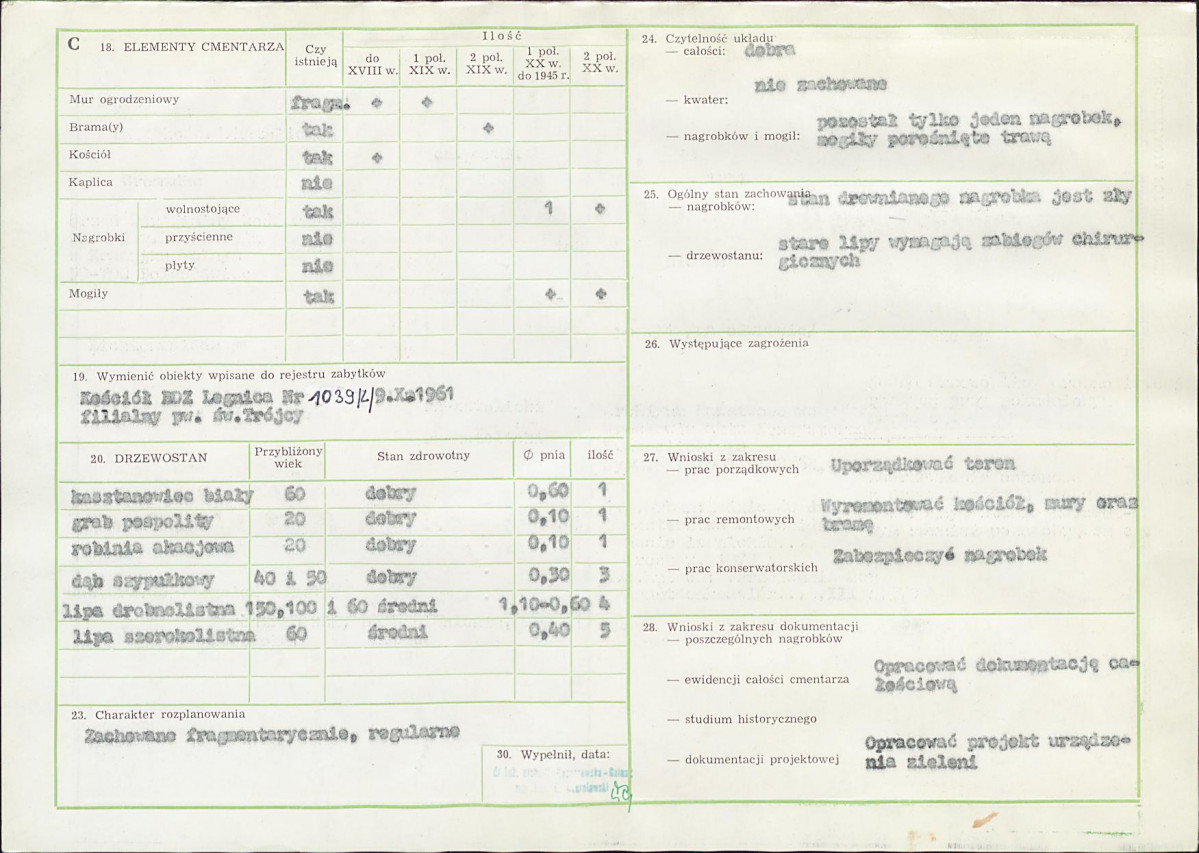 C 18. ELEMENTY CMENTARZA
Czy istnieją
Ilość
do XVIII w.
1 poł. XIX w.
2 poł. XIX w.
1 poł. XX w. do 1945 r.
2 poł. XX w.
Mur ogrodzeniowy fragm. + +
Brama(y) tak +
Kościół tak +
Kaplica nie
Nagrobki
wolnostojące tak 1 +
przyścienne nie
płyty nie
Mogiły tak + +
19. Wymienić obiekty wpisane do rejestru zabytków
Kościół BDZ Legnica Nr 1039/L/9.X.1961
filialny pw. św.Trójcy
20. DRZEWOSTAN
Przybliżony wiek
Stan zdrowotny
Ø pnia
ilość
kasztanowiec biały 60 dobry 0,60 1
grab pospolity 20 dobry 0,10 1
robinia akacjowa 20 dobry 0,10 1
dąb szypułkowy 40 i 50 dobry 0,30 3
lipa drobnolistna 150,100 i 60 średni 1,10-0,60 4
lipa szerokolistna 60 średni 0,40 5
23. Charakter rozplanowania
Zachowane fragmentarycznie, regularne
30. Wypełnił, data:
24. Czytelność układu
— całości: dobra
nie zachowane
— kwater:
pozostał tylko jeden nagrobek,
— nagrobków i mogił: mogiły porośnięte trawą
25. Ogólny stan zachowania
— nagrobków: stan drewnianego nagrobka jest zły
stare lipy wymagają zabiegów chirur-
— drzewostanu: gicznych
26. Występujące zagrożenia
27. Wnioski z zakresu
— prac porządkowych Uporządkować teren
Wyremontować kościół, mury oraz
— prac remontowych bramę
Zabezpieczyć nagrobek
— prac konserwatorskich
28. Wnioski z zakresu dokumentacji
— poszczególnych nagrobków
Opracować dokumentację ca-
— ewidencji całości cmentarza łościową
— studium historycznego
Opracować projekt urządze-
— dokumentacji projektowej nia zieleni